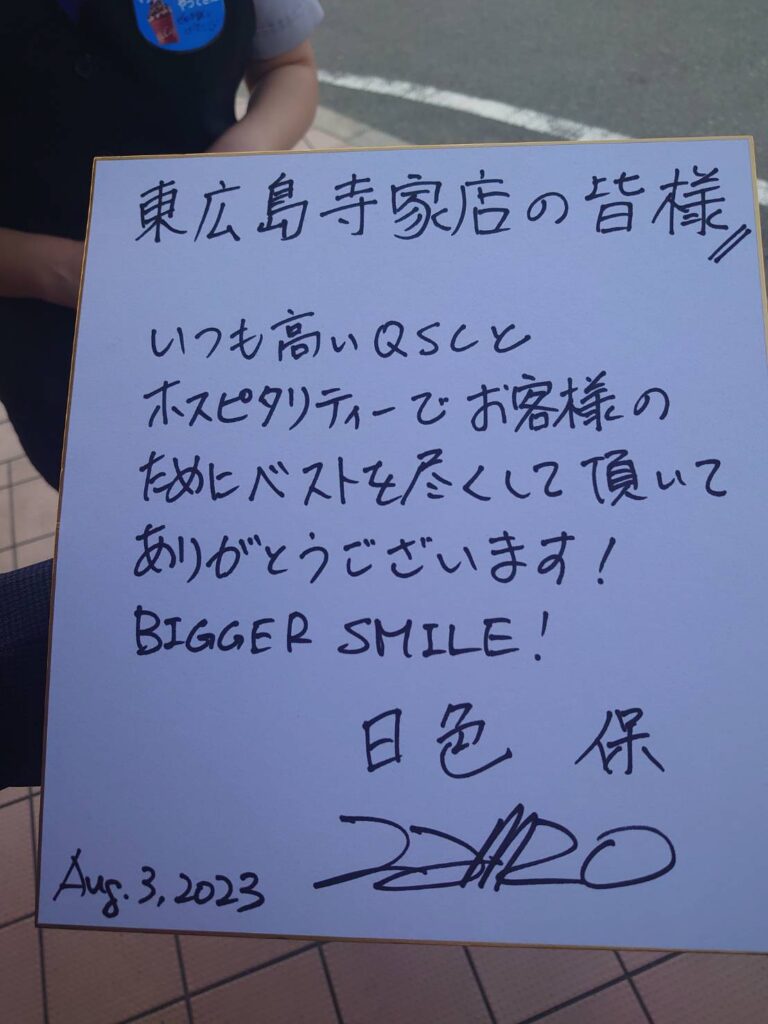 東広島寺家店の皆様
いつも高いQSCと
ホスピタリティーでお客様の
ためにベストを尽くして頂いて
ありがとうございます!
BIGGER SMILE!
日色 保
Aug. 3, 2023